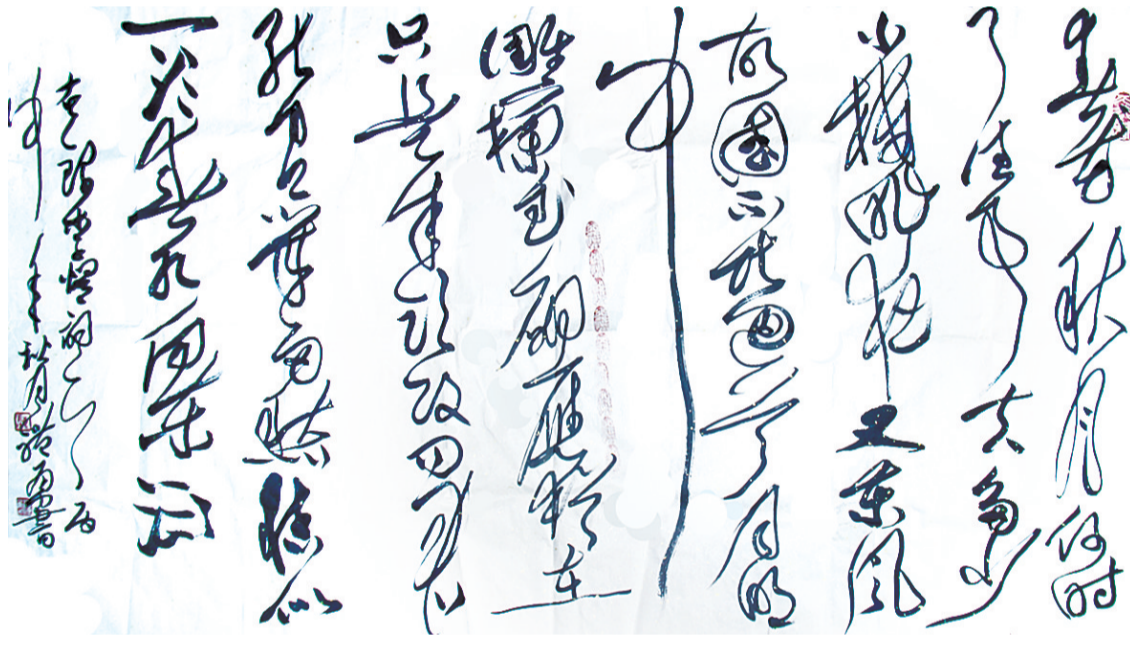 春花秋月何时
了往事知多少
小樓昨夜又東風
故國不堪回首月明
中
雕欄玉砌應猶在
只是朱颜改问君
能有几多愁恰似
一江春水向东流
李煜詞
年秋月 書